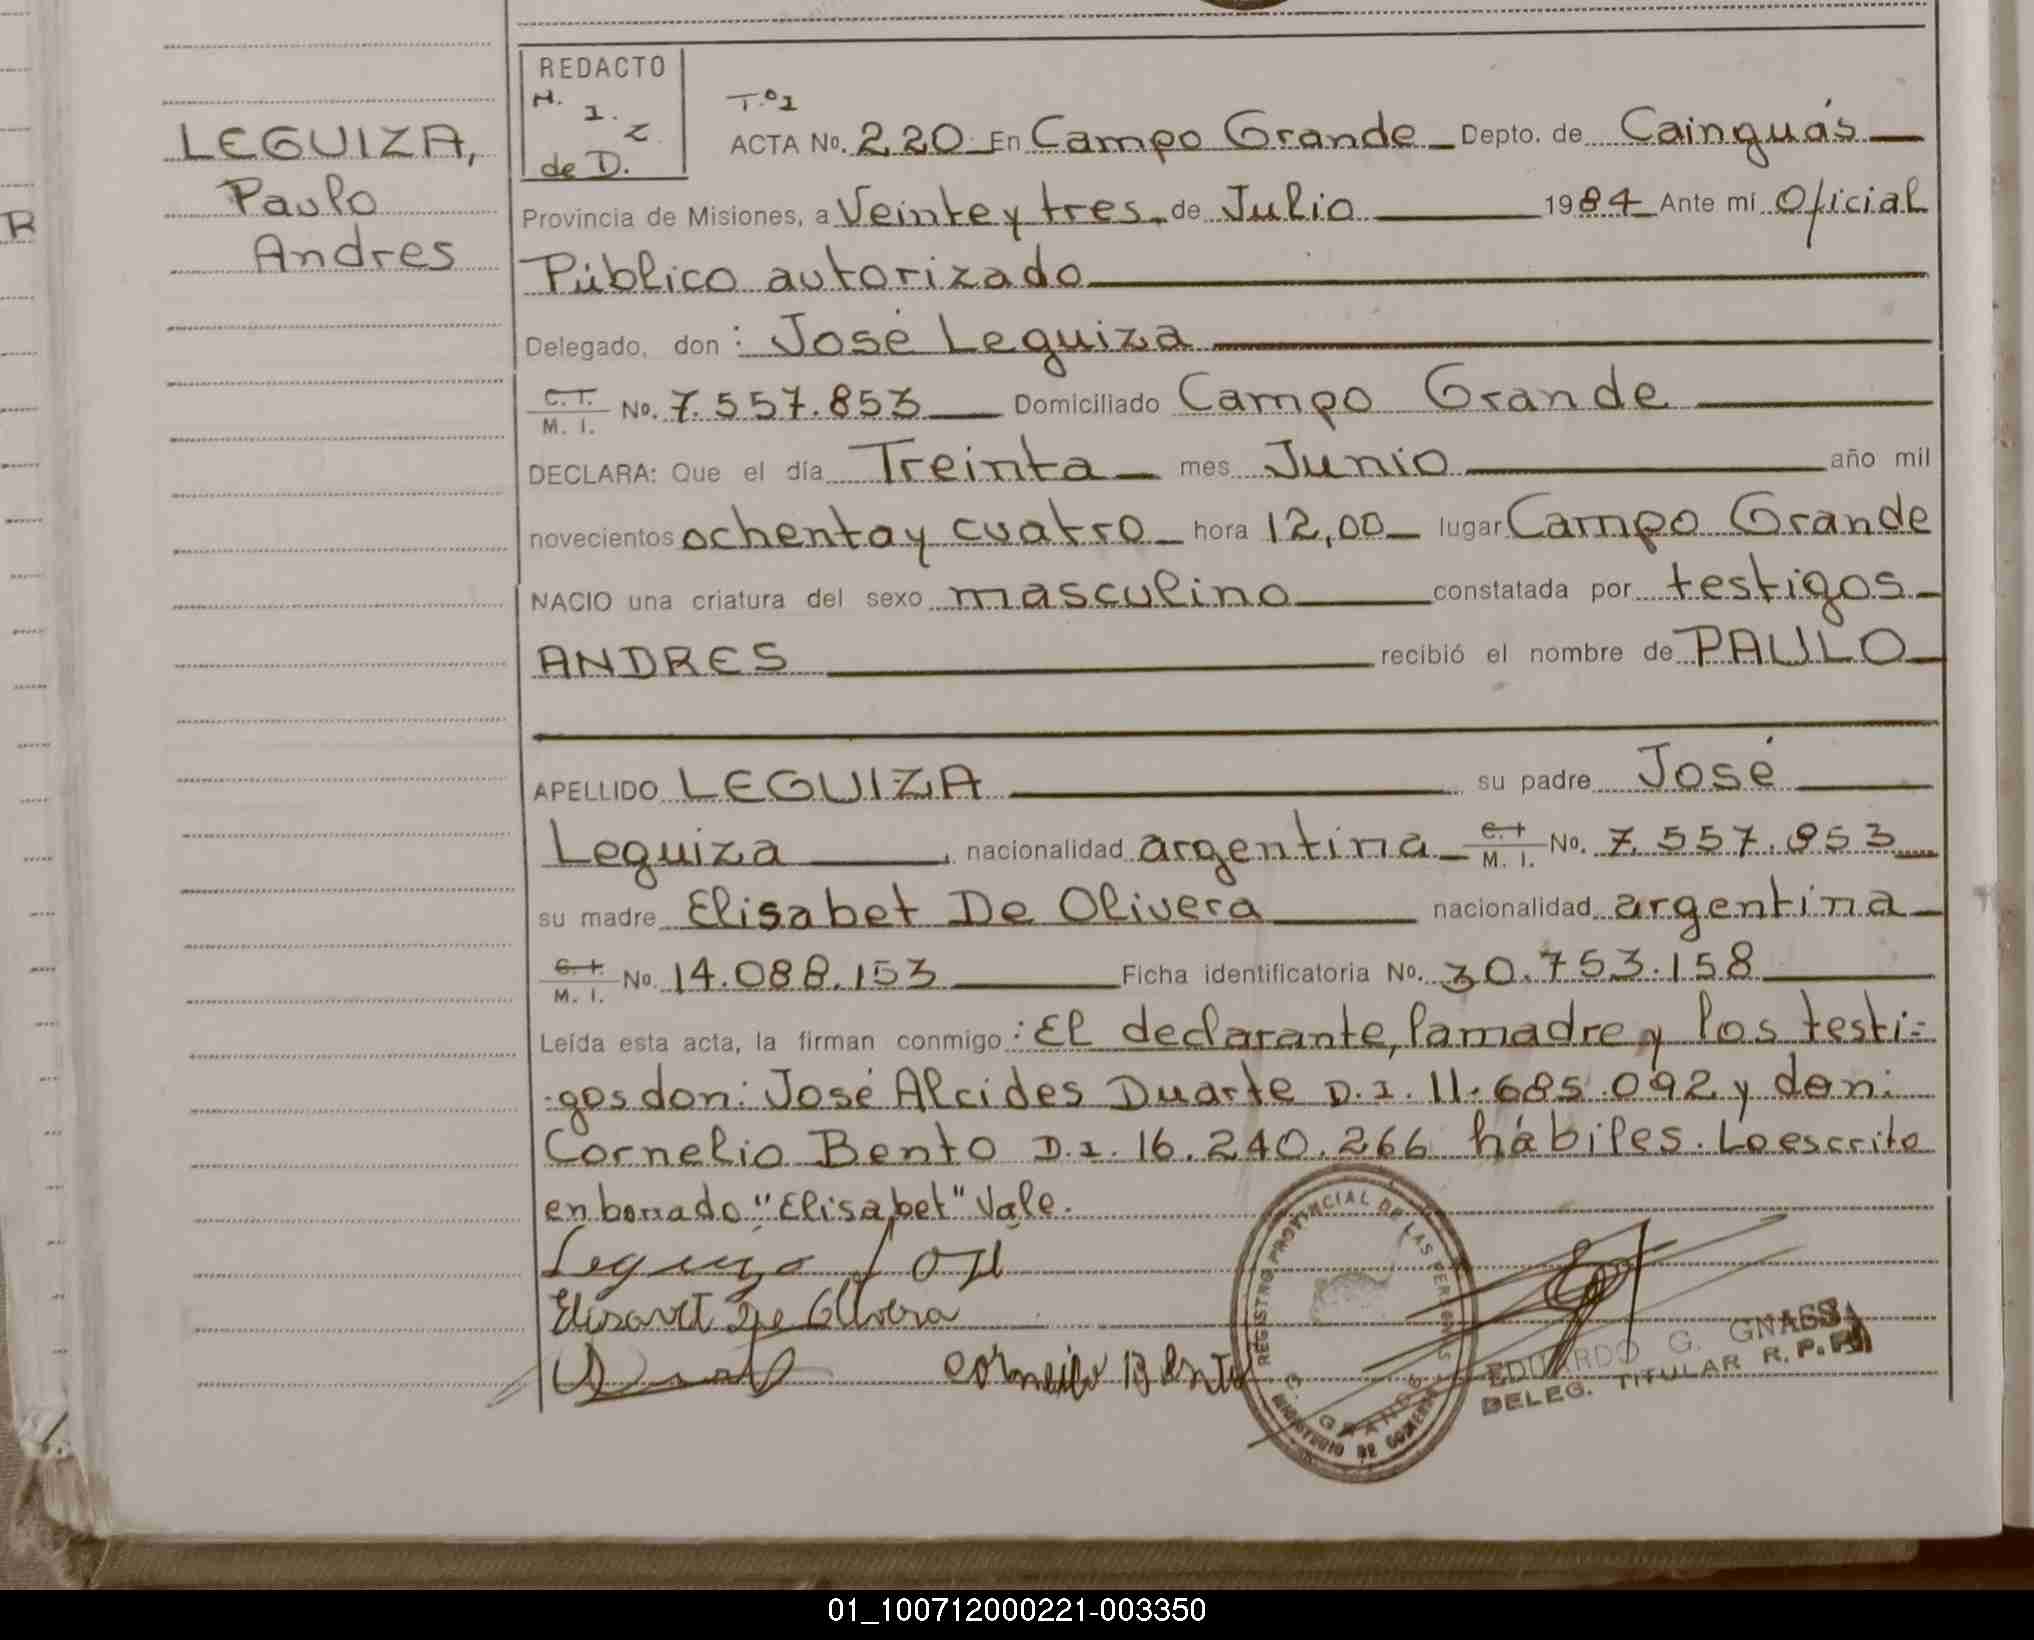 LEGUIZA,
Paulo
Andres
R
REDACTO
M.
I.
Z.
de D.
T.º1
ACTA No. 220 En Campo Grande Depto. de Cainguás
Provincia de Misiones, a Veinte y tres de Julio 1984 Ante mí Oficial
Público autorizado
Delegado, don: José Leguiza
C. I.
M. I. No. 7.557.853 Domiciliado Campo Grande
DECLARA: Que el día Treinta mes Junio año mil
novecientos ochenta y cuatro hora 12,00 lugar Campo Grande
NACIO una criatura del sexo masculino constatada por testigos
ANDRES recibió el nombre de PAULO
APELLIDO LEGUIZA su padre José
Leguiza, nacionalidad argentina C. I. M. I. No. 7.557.853
su madre Elisabet De Olivera nacionalidad argentina
C. I.
M. I. No. 14.088.153 Ficha identificatoria No. 30.753.158
Leída esta acta, la firman conmigo: El declarante, la madre y los testi=
gos don: José Alcides Duarte D.I. 11.685.092 y don:
Cornelio Bento D.I. 16.240.266 hábiles. Lo escrito
en borrado "Elisabet" Vale.
Leguiza José
Elisavet De Olivera
Cornelio Bento
REGISTRO PROVINCIAL DE LAS PERSONAS
C. GRANDE
MINISTERIO DE GOBIERNO
EDUARDO G. GNASS
DELEG. TITULAR R. P. P.
01_100712000221-003350